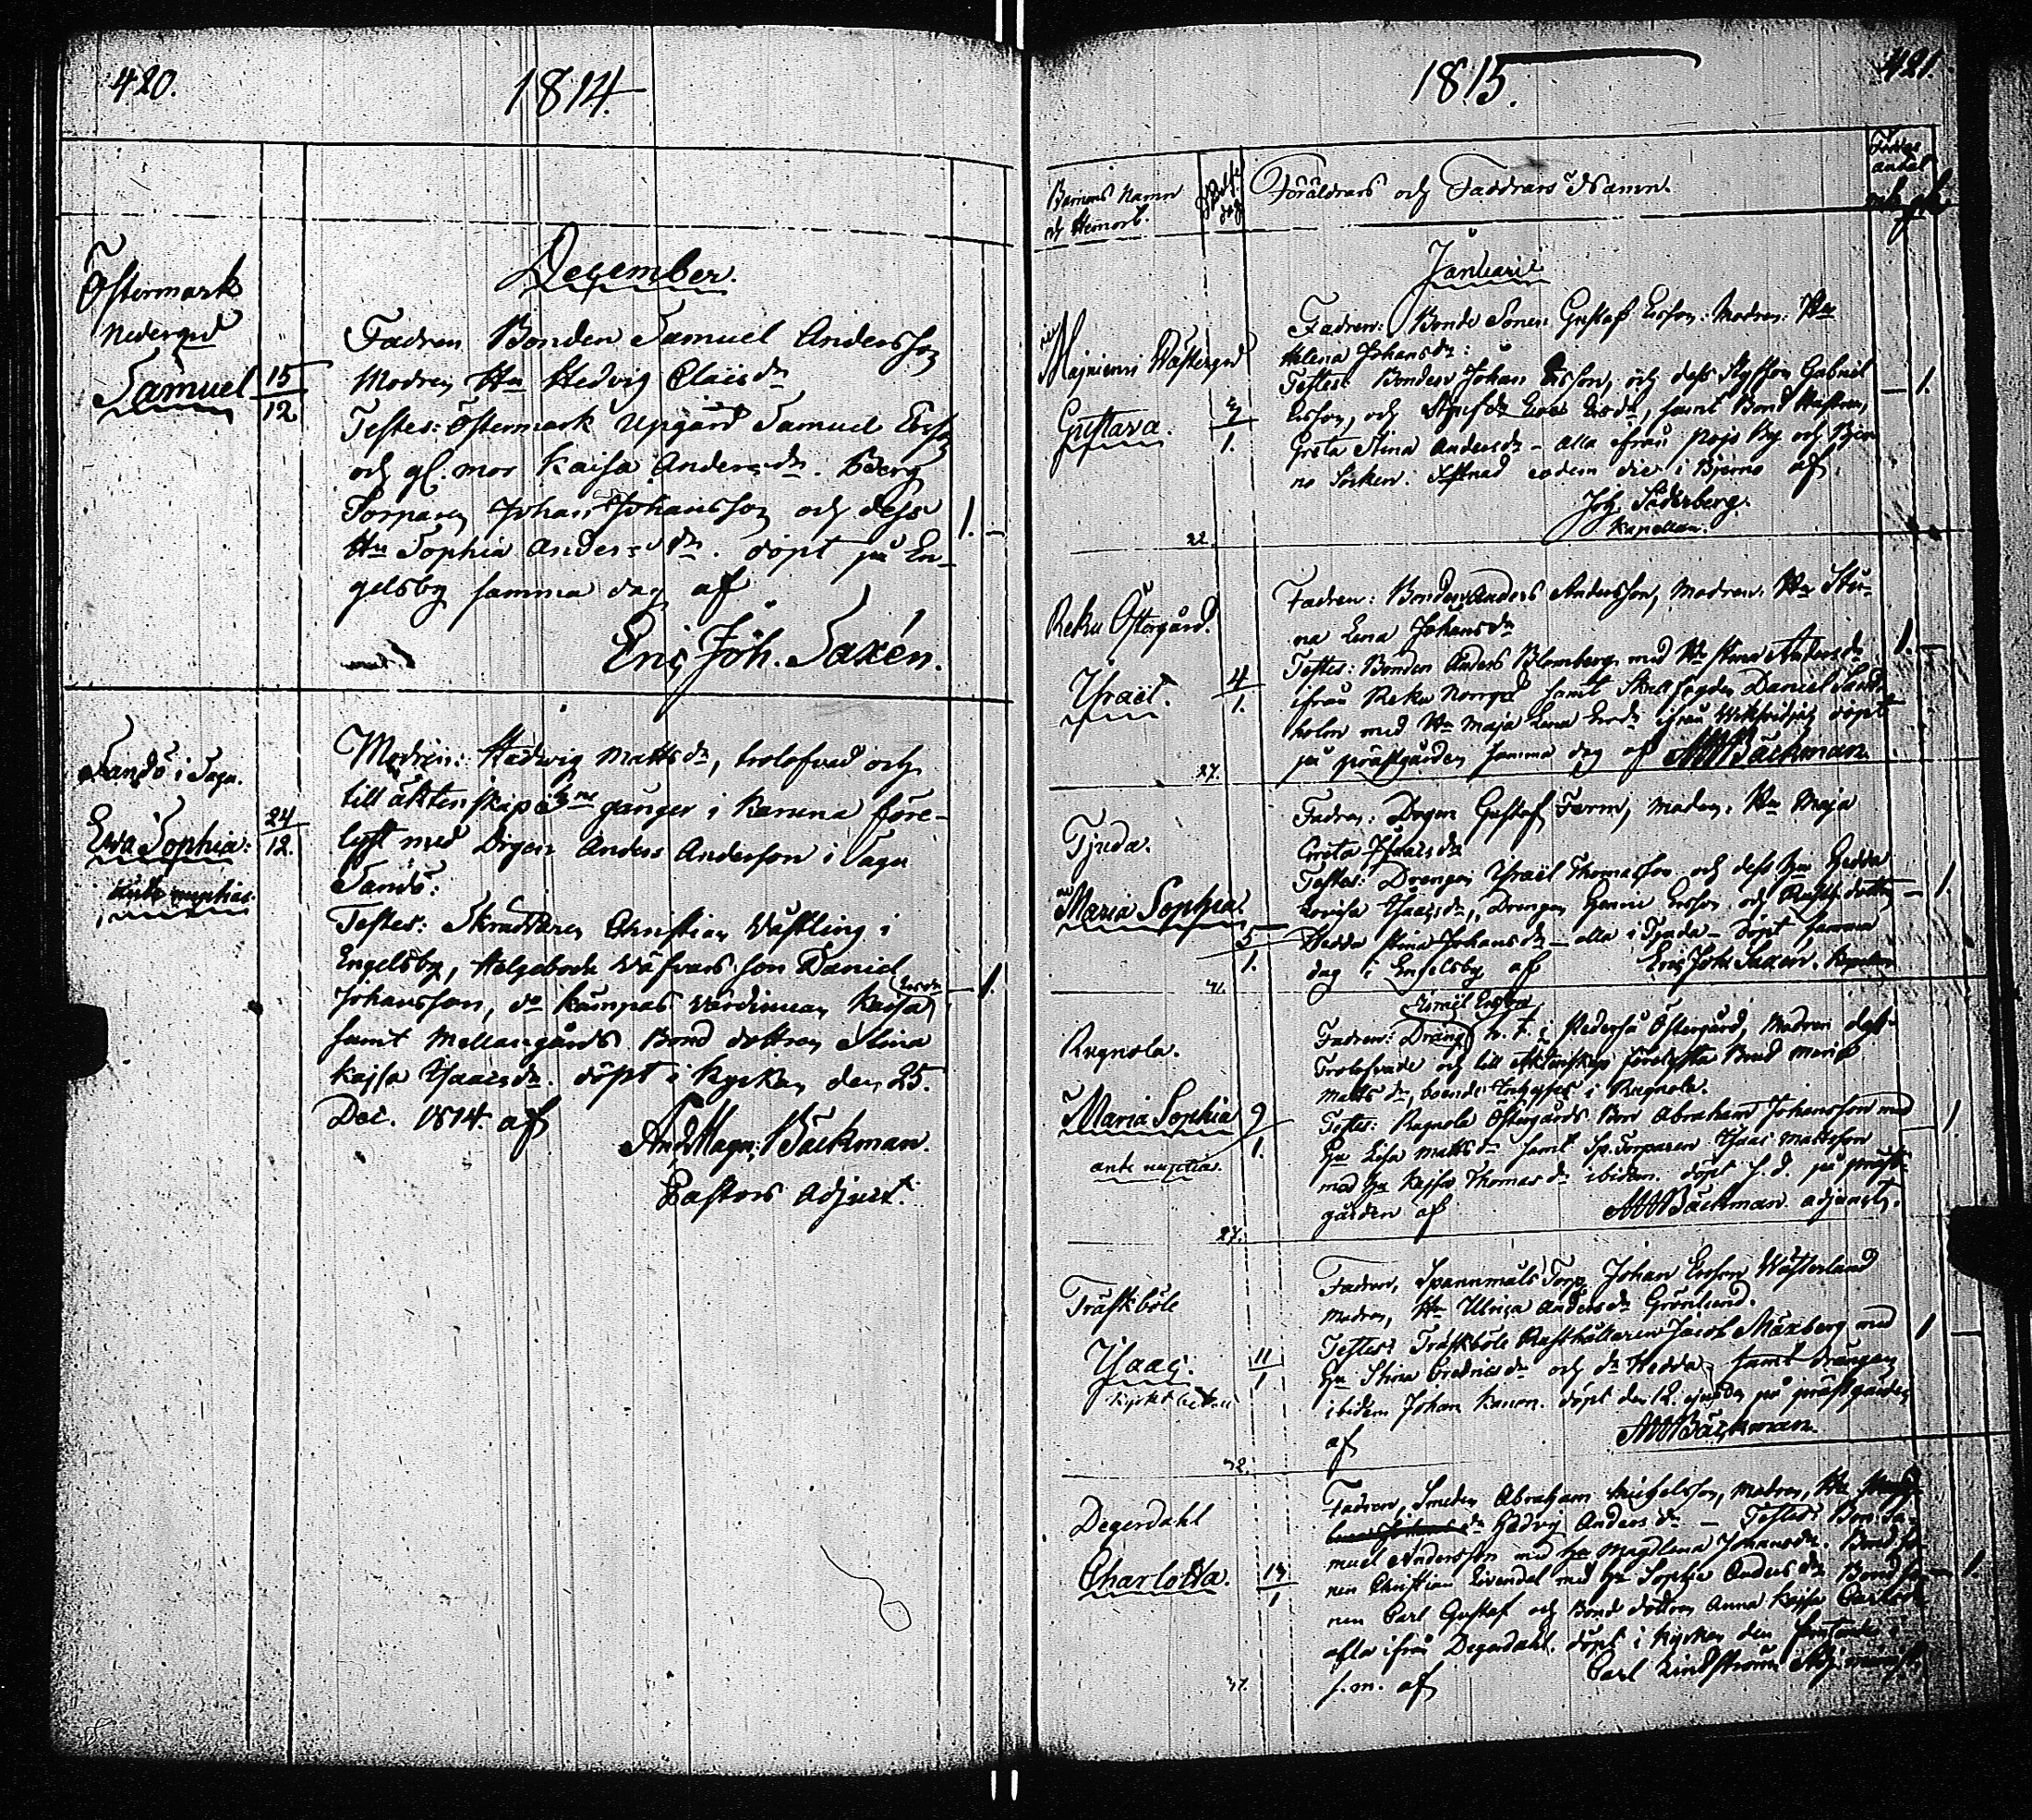 420.
1814.
December.
Östermark
Nedergrd
Samuel 15/12
Fadren Bonden Samuel Andersson
Modren Hu Hedvig Claisdr
Testes: Östermark Upgård Samuel Ersson
och gl. mor Kaisa Andersdr. Berg
Torparen Johan Johansson och dess
Hu Sophia Andersdr. döpt på En-
gelsby samma dag af
1. –
Eric Joh. Saxén.
Sandö i Sagu.
Eva Sophia: 24/12.
ante nuptias.
Modren: Hedwig Mattsdr, trolofvad och
till äktenskap 3ne gånger i Karuna före-
lyst med Drgen Anders Anderson i Sagu
Sandö:
Testes: Skräddaren Christian Wästling i
Engelsby, Helgeboda Väfvars son Daniel
Johansson, do Kämpas värdinnan Kaisa Ersdr
samt Mellangårds Bond dottren Stina
Kajsa Isaacsdr. döpt i Kyrkan den 25.
Dec. 1814. af
– 1.
And Magn: Bäckman.
Pastors Adjunct.
421.
1815.
Barnens Namn
och Hemort.
Föräldrars och Faddrars Namn.
antal
Januari
Majniemi Västergrd
Gustava. 3/1.
Fadren: Bonde Sonen Gustaf Ersson: Modren: Hu
Helena Johansdr:
Testes: Bonden Johan Ersson, och dess Gabriel
Ersson, och Ersdr, samt Bond Hustrun,
Greta Stina Andersdr – alla ifrån Pojo By och Bjer-
no Socken. eodem die i Bjerno af
– 1.
Joh. Söderberg.
Kapellan.
22.
Reku Östergård.
Israël. 4/1.
Fadren: Bonden Anders Andersson, Modren: Hu Sti-
na Lena Johansdr
Testes: Bonden Anders Blomberg med Hu Stina Andersdr
ifrån Reku Norrgrd samt Daniel
holm med Hu Maja Lena Ersdr ifrån döpt
på prästgården samma dag af AMBäckman
1. –
27.
Tjuda.
Maria Sophia. 5/1.
Fadren: Drgen Gustaf Form, Modren: Hu Maja
Greta Isaacsdr
Testes: Drengen Israël Thomasson och dess Hu Hedda
Lovisa Isaacsdr, Drengen Henric Ersson och dotter
Hedda Stina Johansdr – alla i Tjuda – döpt samma
dag i Engelsby af Eric Joh. Saxén. Kapellan
– 1.
Israel Ersson
Rugnola.
Maria Sophia 9/1.
ante nuptias.
Fadren: Dräng h. t. i Pedersä Östergård, Modren dess
Trolofvade och till äktenskap förelysta Maria
Matts dr, boende i Rugnola.
Testes: Rugnola Östergårds Bon Abraham Johansson med
Hu Lisa Mattsdr samt Sp. Torparen Isaac Mattsson
med Hu Kajsa Thomasdr ibidem. döpt s. d. på präst-
gården af AMBäckman adjunct.
– 1.
27.
Träskböle
Isaac. 11/1
Fadren, Spannmåls Torp. Johan Ersson Wästerlund
Modren, Hu Ulrica Andersdr Grönlund.
Testes: Träskböle Rusthållaren Jacob Mänberg med
Hu Stina Fredricsdr och dr Hedda, samt drängen
ibidem Johan Kanon. döpt den 12. ejusdem på prästgården
af AMBäckman.
1 –
32.
Degerdahl
Charlotta. 13/1
Fadren, Smeden Abraham Michelsson, Modren, Hu
Hedvig Andersdr – Testes: Bon. Sa-
muel Andersson med Hu Magdlena Johansdr. Bond so-
nen Christian Livendal med Hu Sophia Andersdr Bond so-
nen Carl Gustaf och Bond dottren Anna Kajsa Carlsdr
alla ifrån Degerdahl. döpt i Kyrkan den femtonde
s. m. af Carl Lindström
– 1.